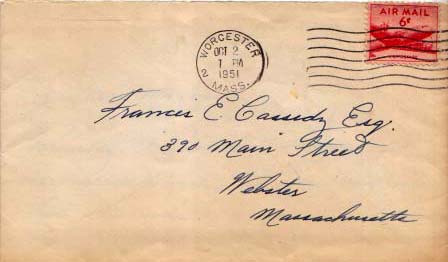 AIR MAIL
6¢
WORCESTER
OCT 2
1 PM
1951
2
MASS.
Francis E. Cassidy Esq.
390 Main Street
Webster
Massachusetts